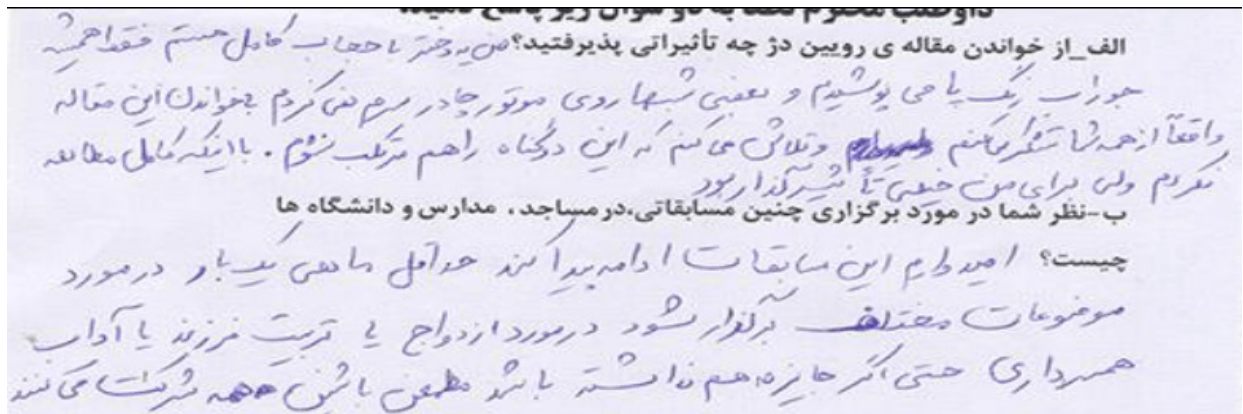 داوطلب محترم لطفا به دو سوال زیر پاسخ دهید:
الف_از خواندن مقاله ی رویین دژ چه تأثیراتی پذیرفتید؟ من یه دختر با حجاب کامل هستم فقط همیشه
جوراب رنگ پا می پوشیدم و بعضی شبها روی موتور چادر سرم نمی کردم بخواندن این مقاله
واقعاً از همه شما تشکر میکنم و تلاش می کنم که این دو گناه را هم مرتکب نشوم . با اینکه کامل مطالعه
نکردم ولی برای من خیلی تأثیر گذار بود
ب-نظر شما در مورد برگزاری چنین مسابقاتی،درمساجد، مدارس و دانشگاه ها
چیست؟ امیدوارم این مسابقات ادامه پیدا کند حداقل ماهی یک بار درمورد
موضوعات مختلف برگزار شود درمورد ازدواج یا تربیت فرزند یا آداب
همسرداری حتی اگر جایزه هم نداشته باشد مطمعن باشین همه شرکت می کنند